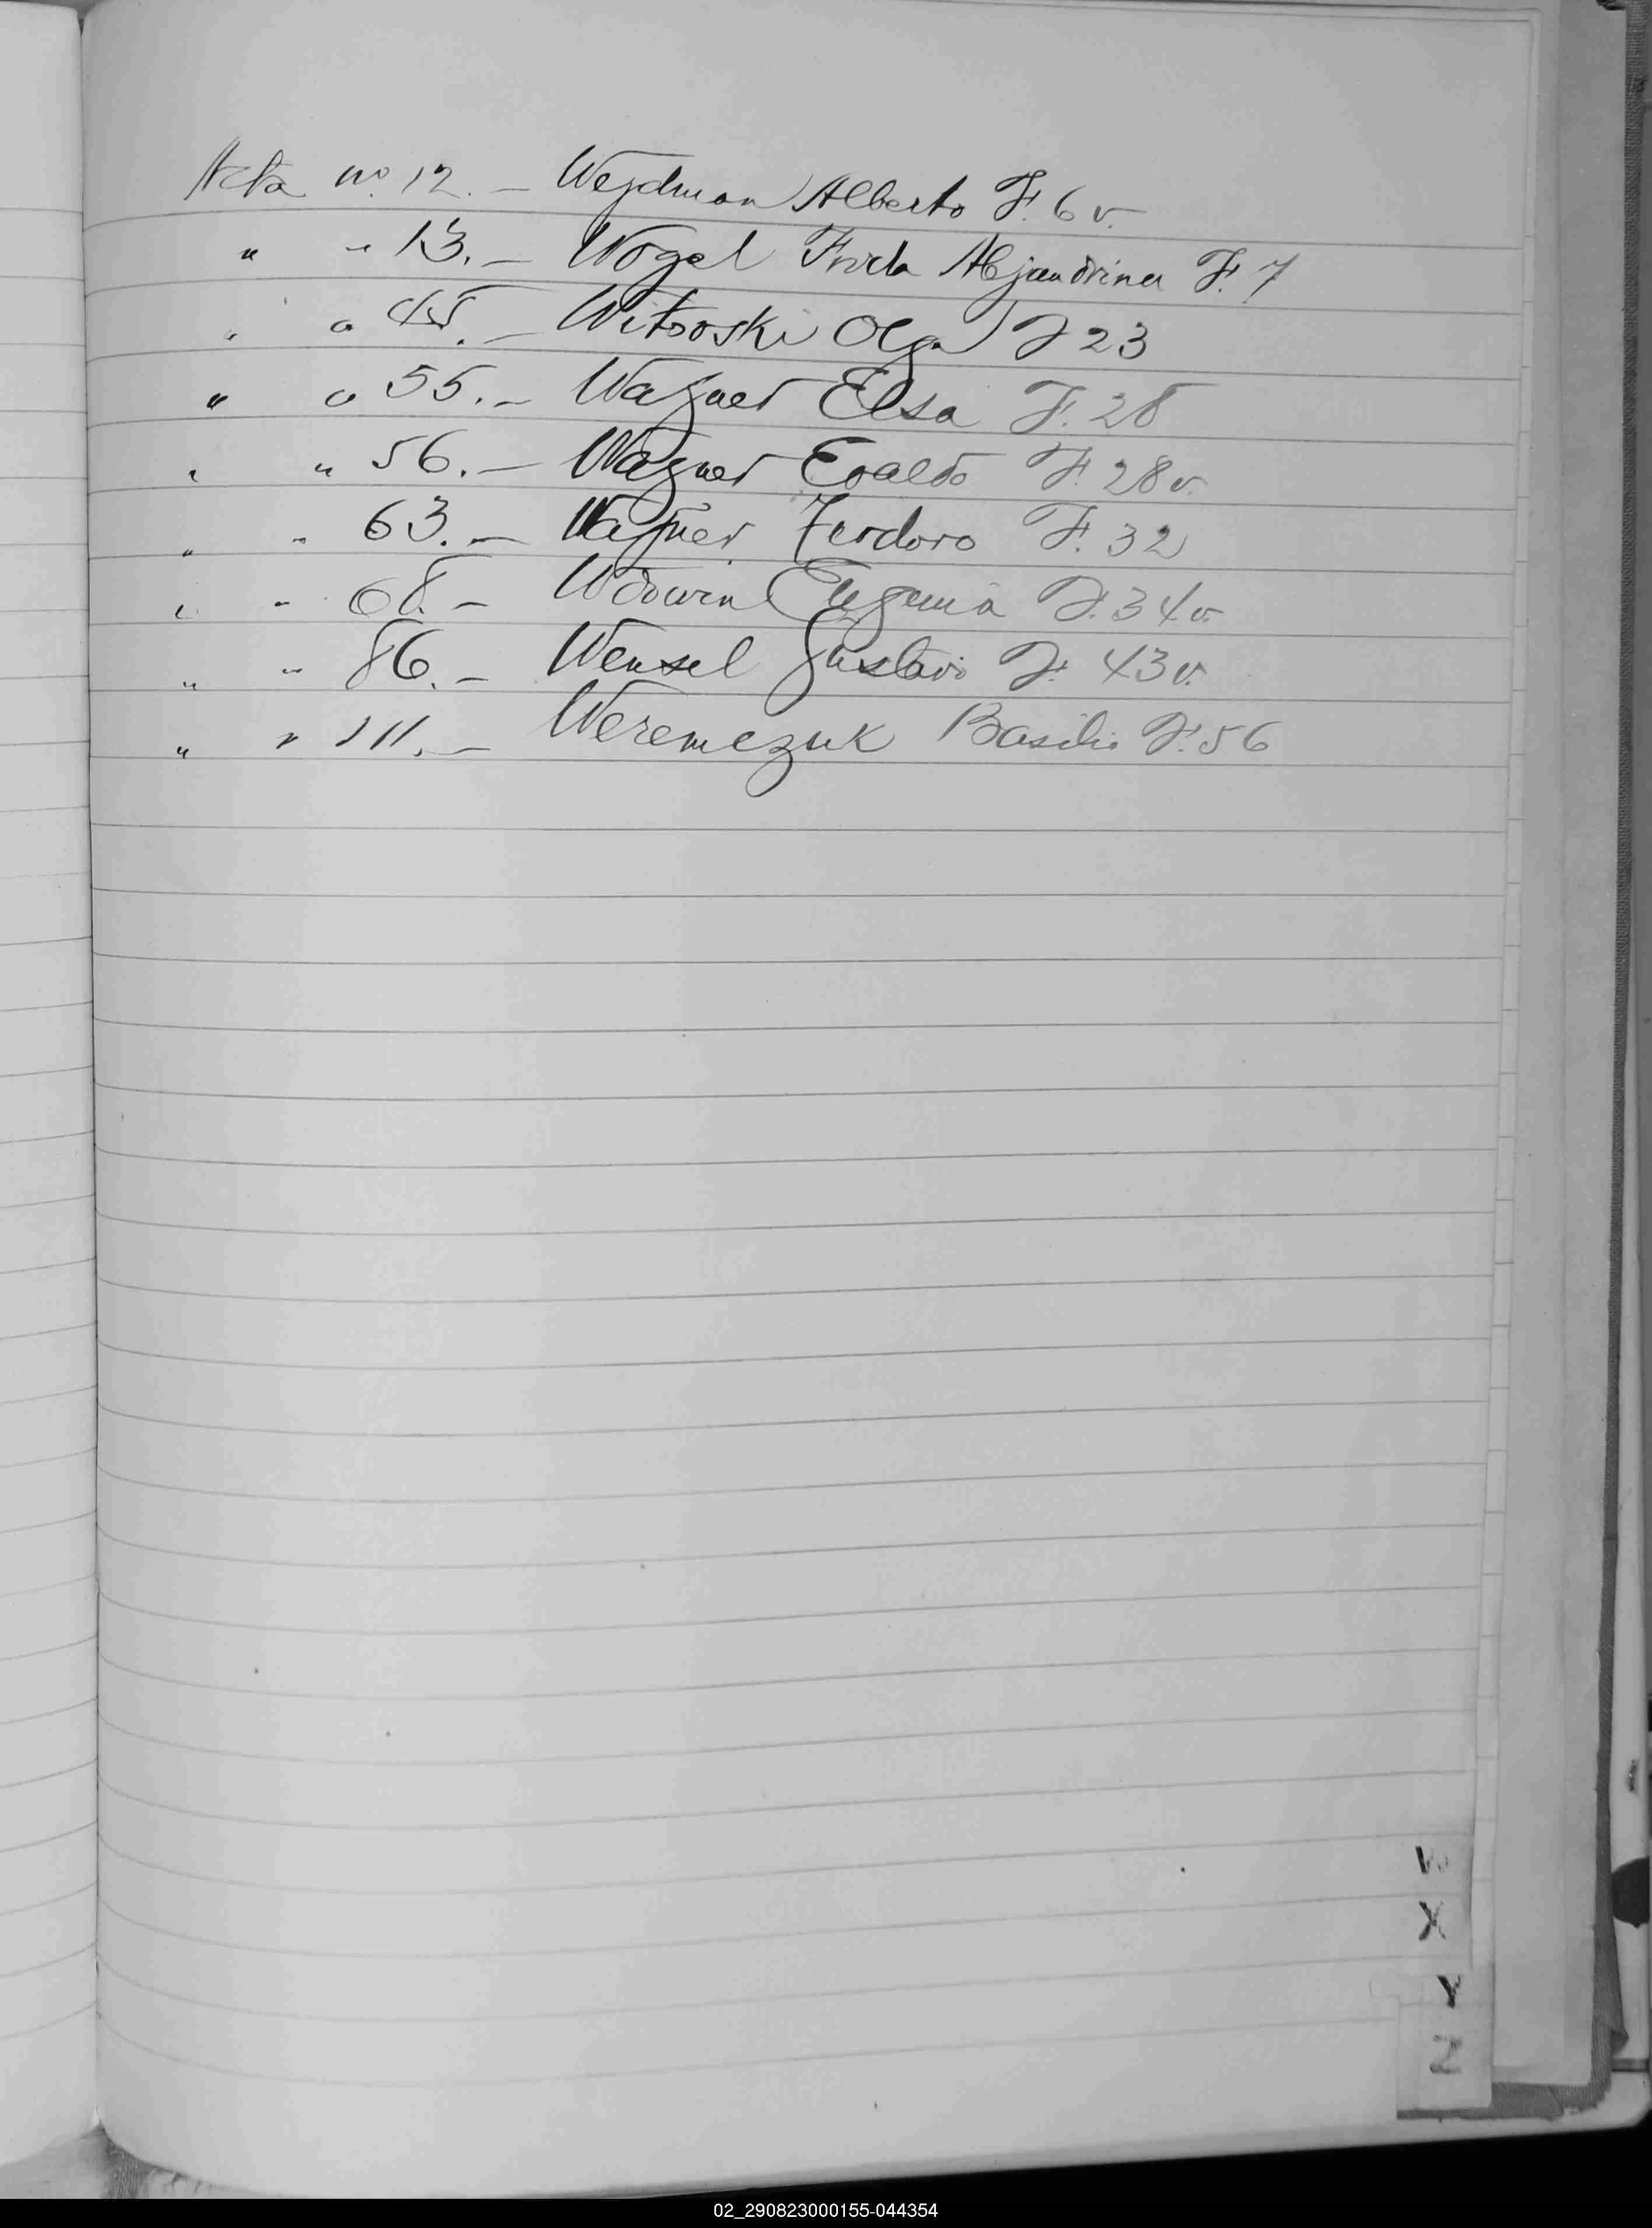 Acta nº 12. — Wejdman Alberto F. 6 v.
" " 13. — Wogel Frida Alejandrina F. 7
" " 45. — Witooski Olga F 23
" " 55. — Wagner Elsa F. 28
" " 56. — Wagner Evaldo F. 28 v.
" " 63. — Wagner Teodoro F. 32
" " 68. — Wdowin Eugenia F. 34 v.
" " 86. — Wensel Gustavo F. 43 v.
" " 111. — Weremczuk Basilio F. 56
W
X
Y
Z
02_290823000155-044354